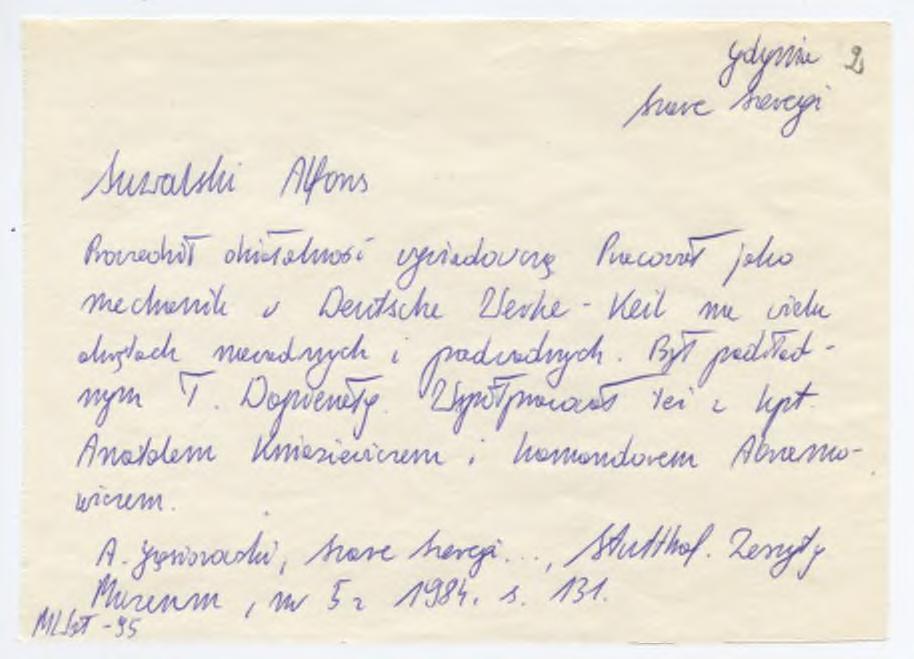 Gdynia 2
Szare Szeregi
Suwalski Alfons
Prowadził działalność wywiadowczą Pracował jako
mechanik w Deutsche Werke - Keil na wielu
okrętach nawodnych i podwodnych. Był podwład-
nym T. Współpracował też z kpt.
Anatolem Kniaziewiczem i komandorem Abramo-
wiczem.
A. Gąsiorowski, Szare Szeregi..., Stutthof. Zeszyty
Muzeum, nr 5 z 1984. s. 131.